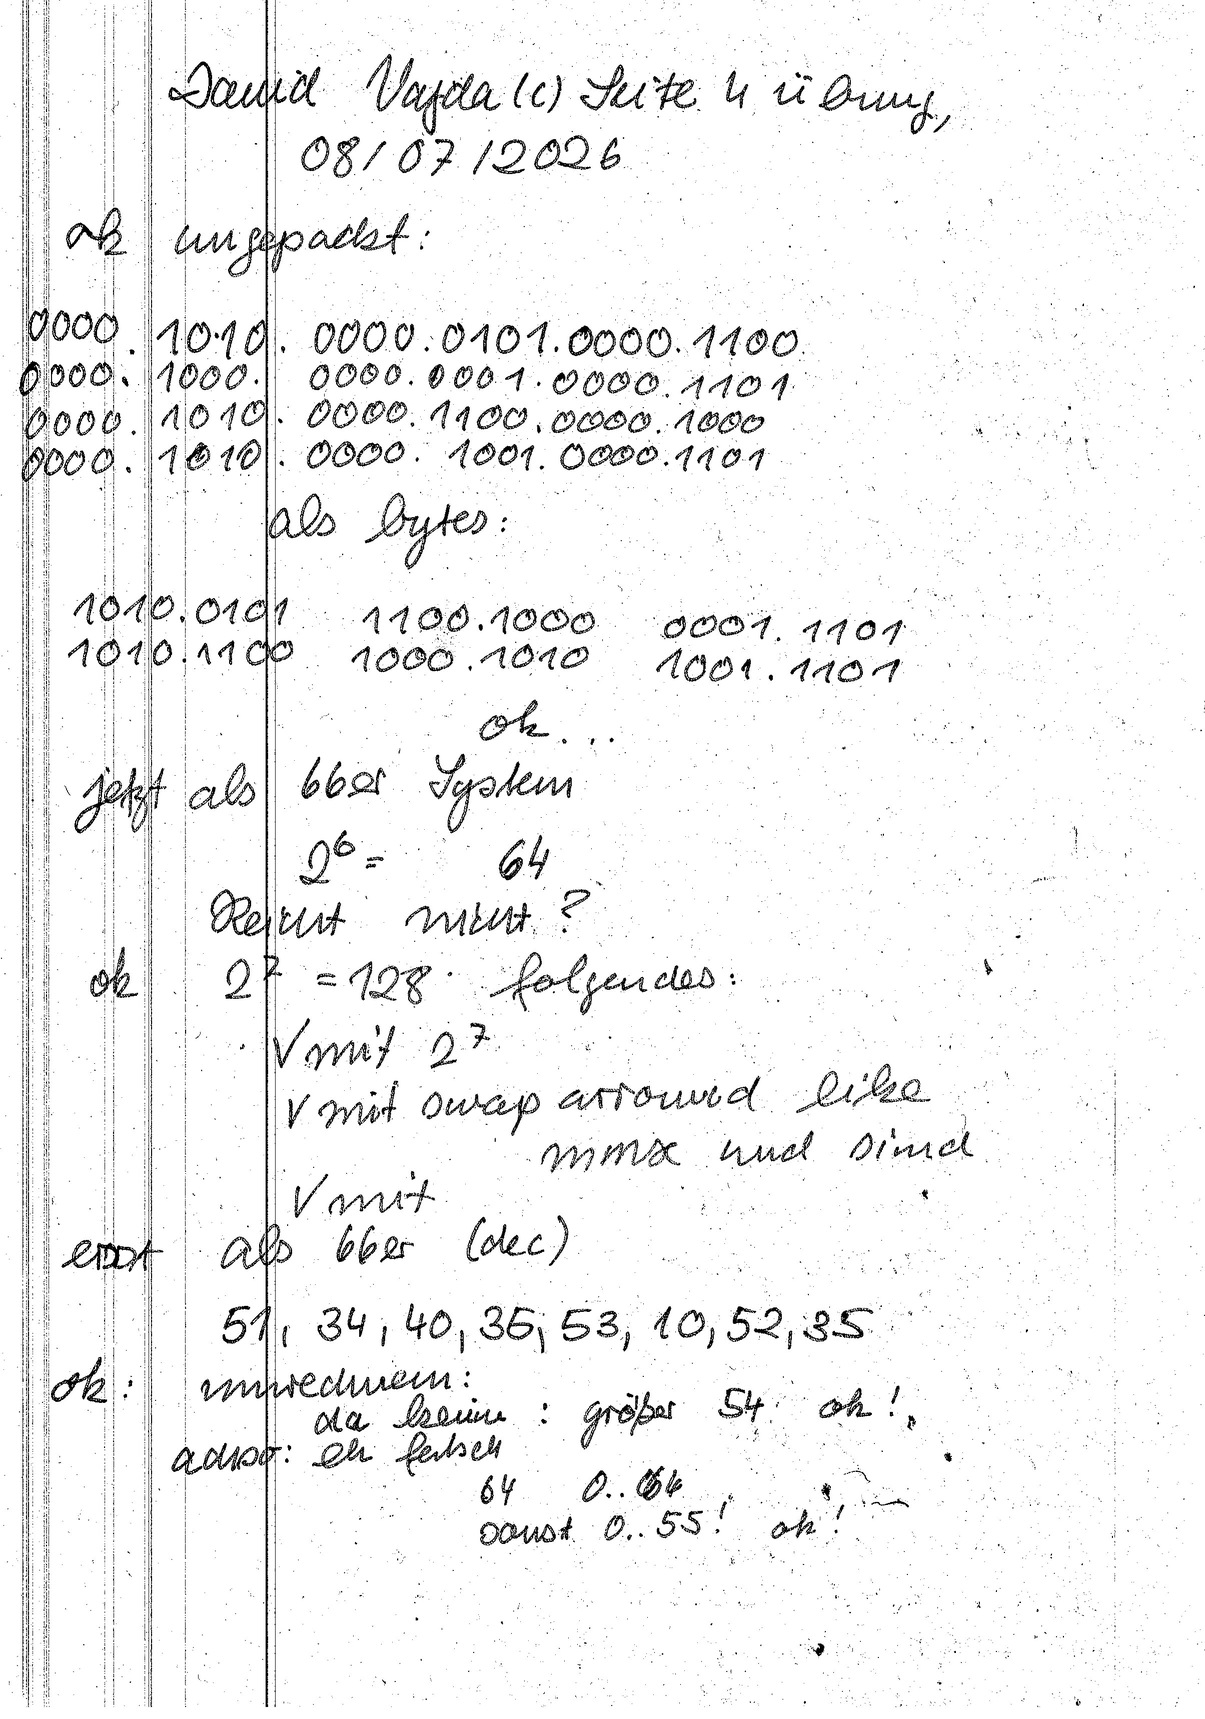 David Vajda (c) Seite 4 übung,
08/07/2026
ok ungepackt:
0000.1010.0000.0101.0000.1100
0000.1000.0000.0001.0000.1101
0000.1010.0000.1100.0000.1000
0000.1010.0000.1001.0000.1101
als bytes:
1010.0101 1100.1000 0001.1101
1010.1100 1000.1010 1001.1101
ok...
jetzt als 66er System
2^6 = 64
Reicht nicht?
ok 2^7 = 128 folgendes:
V mit 2^7
V mit swap arround like
mmx und simd
V mit
erst als 66er (dec)
51, 34, 40, 35, 53, 10, 52, 35
ok: umrechnen:
da keine : größer 54 ok!
eh falsch
64 0..64
sonst 0..55! ok!